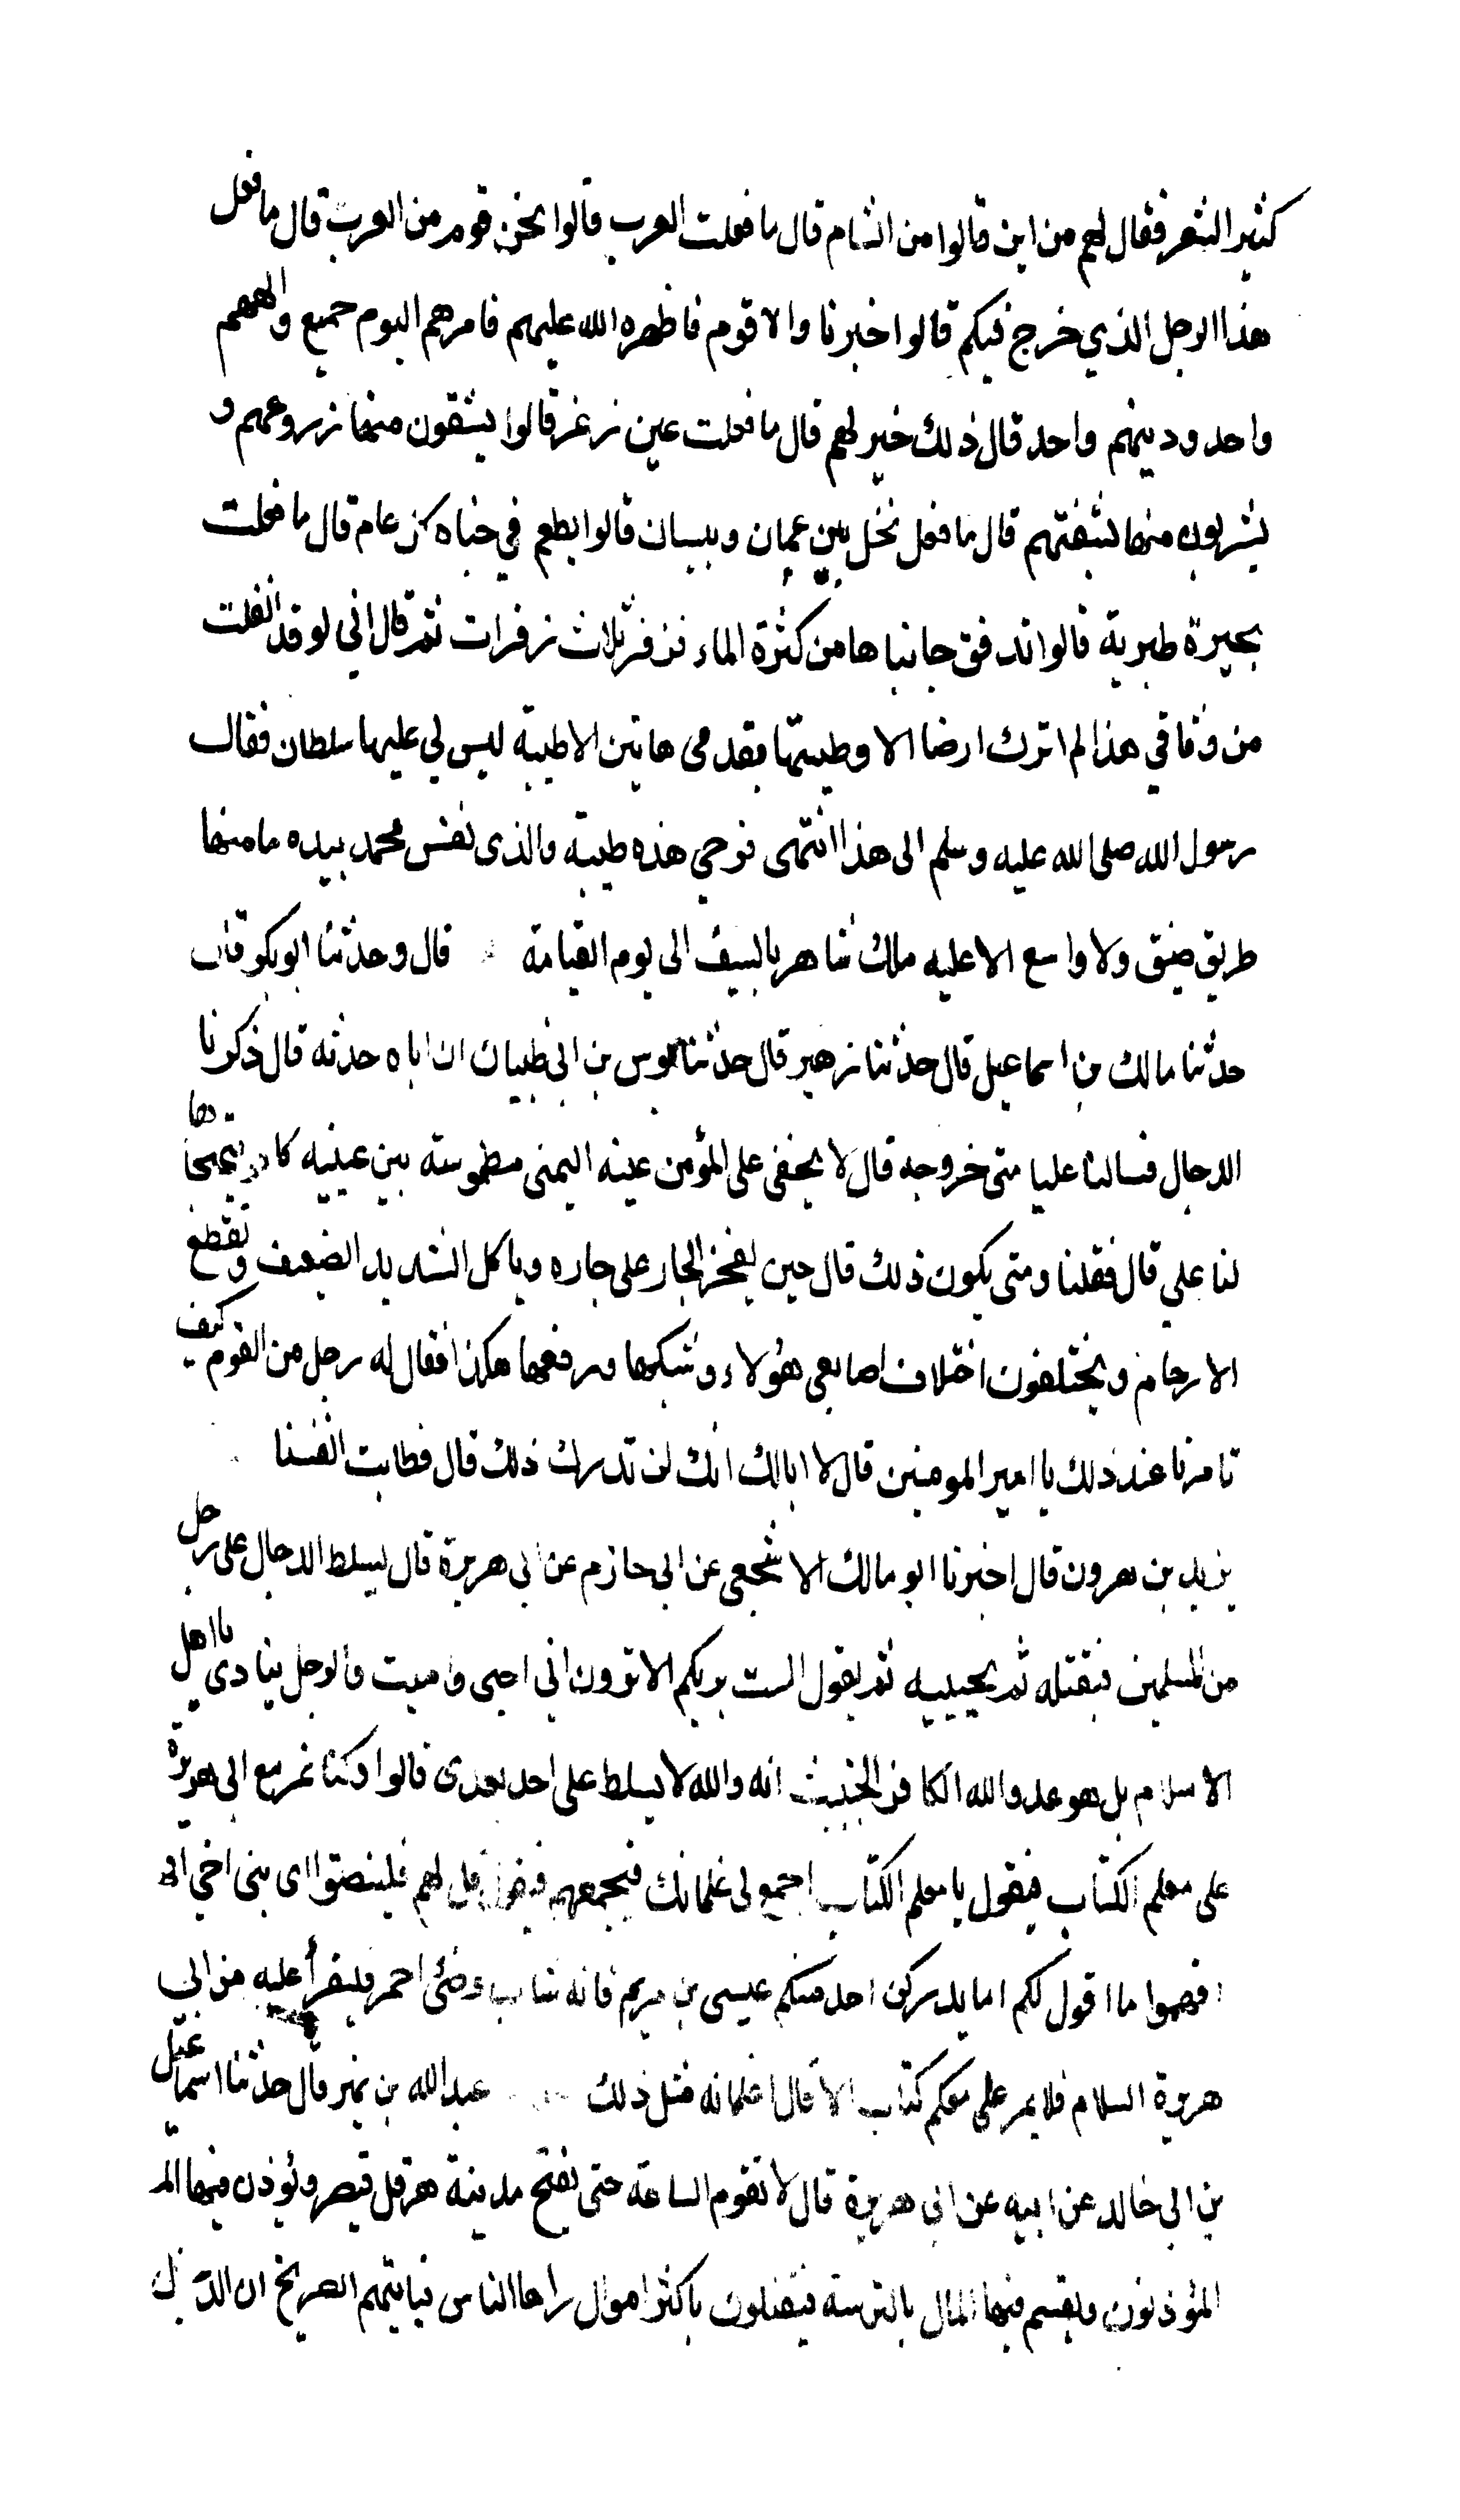 كثير الشعر فقال لهم من اين قالوا من الشام قال ما فعلت العرب قالوا نحن قوم من العرب قال ما فعل
هذا الرجل الذي خرج فيكم قالوا خيرا ناوا قوم فاظهره الله عليهم فامرهم اليوم جميع والههم
واحد ودينهم واحد قال ذلك خير لهم قال ما فعلت عين زغر قالوا يسقون منها زروعهم و
يشربون منها لشفتهم قال ما فعل نخل بين عمان وبيسان قالوا يطعم في جناه كل عام قال ما فعلت
بحيرة طبرية قالوا تدفق جانباها من كثرة الماء فزفر ثلاث زفرات ثم قال اني لو قد انفلت
من وثاقي هذا لم اترك ارضا الا وطيتها بقدمى هاتين الا طيبة ليس لي عليها سلطان فقال
رسول الله صلى الله عليه وسلم الى هذا انتهى فرحي هذه طيبة والذى نفس محمد بيده ما منها
طريق ضيق ولا واسع الا عليه ملك شاهر بالسيف الى يوم القيامة قال وحدثنا ابو بكر قال
حدثنا مالك بن اسماعيل قال حدثنا زهير قال حدثنا قابوس بن ابي ظبيان ان اباه حدثه قال ذكرنا
الدجال فسالنا عليا متى خروجه قال لا يخفى على المؤمن عينه اليمنى مطموسة بين عينيه كافر يتهجاها
لنا علي قال فقلنا ومتى يكون ذلك قال حين يفخر الجار على جاره وياكل الشديد الضعيف وتقطع
الارحام ويختلفون اختلاف اصابعى هؤلاء وشبكها ورفعها هكذا فقال له رجل من القوم كيف
تامرنا عند ذلك يا امير المومنين قال لا ابالك انك لن تدرك ذلك قال فطابت انفسنا
يزيد بن هرون قال اخبرنا ابو مالك الاشجعى عن ابي حازم عن ابي هريرة قال يسلط الدجال على رجل
من المسلمين فيقتله ثم يحييه ثم يقول الست بربكم الا ترون اني احيى واميت والرجل ينادى يا اهل
الاسلام بل هو عدو الله الكافر الخبيث انه والله لا يسلط على احد بعدى قالوا وكنا نمر مع ابى هريرة
على معلم الكتاب فيقول يا معلم الكتاب اجمع لى غلمانك فيجمعهم فيقول قل لهم فلينصتوا اى بنى اخي
افهموا ما اقول لكم اما يدركن احد منكم عيسى بن مريم فانه شاب وضئ احمر فليقرأ عليه من ابي
هريرة السلام فلا يمر على معلم كتاب الا قال لغلمانه مثل ذلك عبد الله بن نمير قال حدثنا اسماعيل
بن ابي خالد عن ابيه عن ابي هريرة قال لا تقوم الساعة حتى تفتح مدينة هرقل قيصر ويؤذن فيها
المؤذنون ويقسم فيها المال بالترسة فيقبلون باكثر اموال راها الناس فياتيهم الصريخ ان الدجال